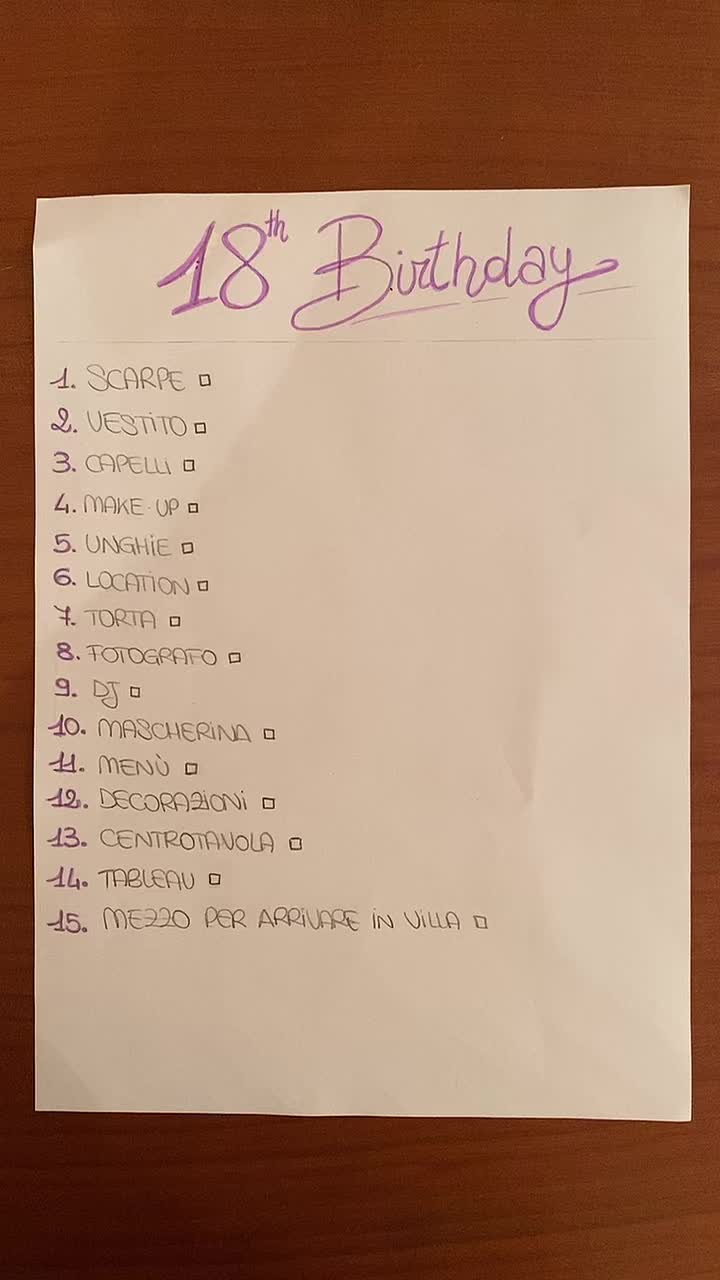 18th Birthday
1. SCARPE □
2. VESTITO □
3. CAPELLI □
4. MAKE-UP □
5. UNGHIE □
6. LOCATION □
7. TORTA □
8. FOTOGRAFO □
9. DJ □
10. MASCHERINA □
11. MENÙ □
12. DECORAZIONI □
13. CENTROTAVOLA □
14. TABLEAU □
15. MEZZO PER ARRIVARE IN VILLA □